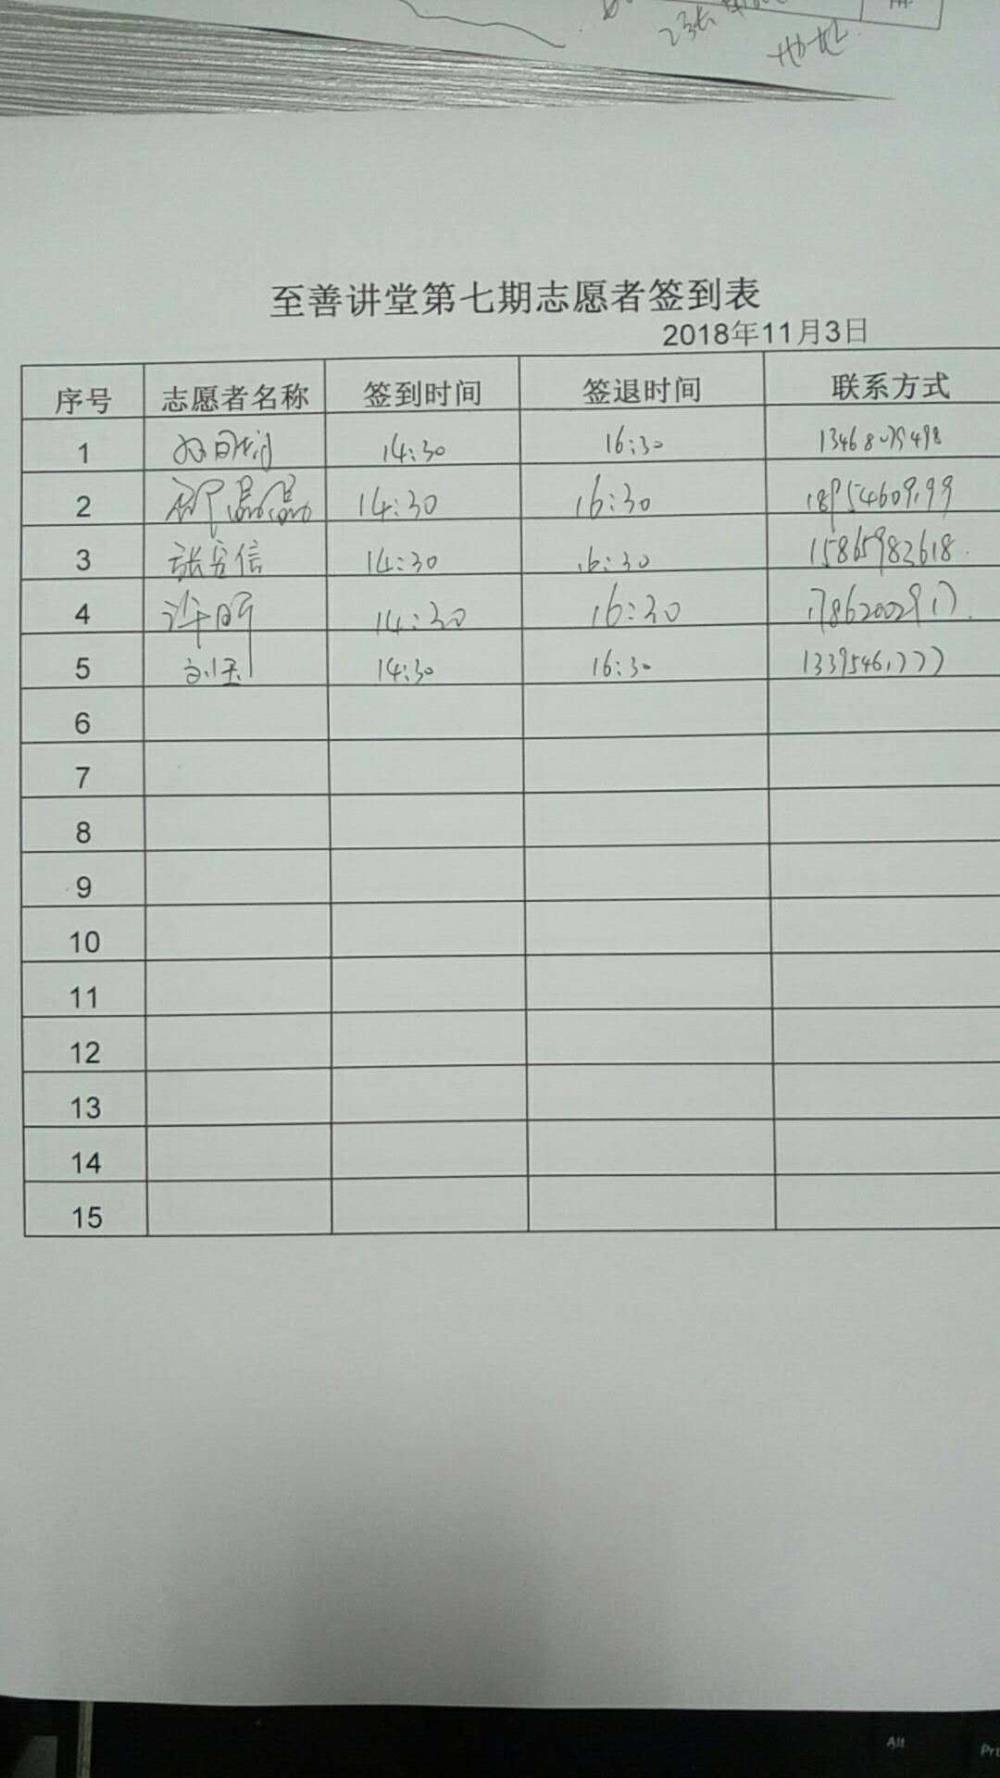 地址
至善讲堂第七期志愿者签到表
2018年11月3日
序号 志愿者名称 签到时间 签退时间 联系方式
1 14:30 16:30
2 14:30 16:30 18954609199
3 张安信 14:30 16:30 15865983618
4 许昕 14:30 16:30 17862002917
5 14:30 16:30 13395461777
6
7
8
9
10
11
12
13
14
15
Alt